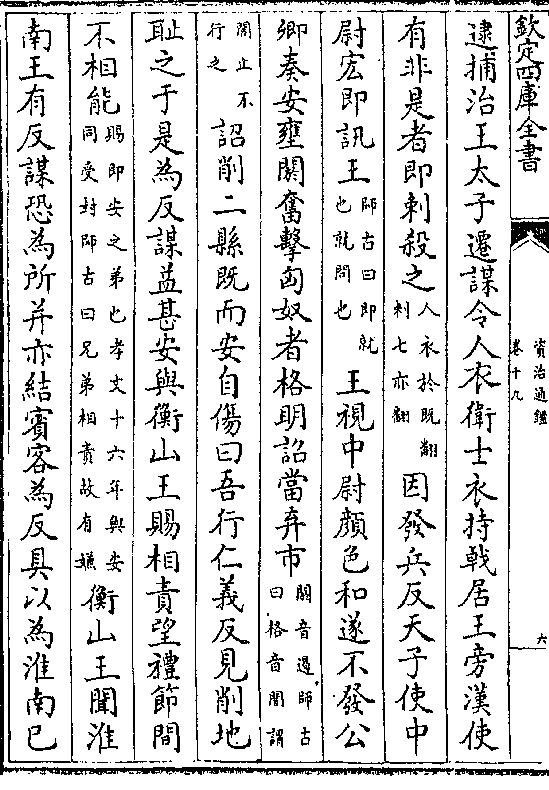 欽定四庫全書
資治通鑑
卷十九
六
逮捕治王太子遷謀令人衣衛士衣持戟居王旁漢使
有非是者即刺殺之人衣於既翻刺七亦翻因發兵反天子使中
尉宏即訊王師古曰即就也就問也王視中尉顔色和遂不發公
卿奏安壅閼奮擊匈奴者格明詔當弃市閼音遏師古曰格音閣謂
閣止不行之詔削二縣既而安自傷曰吾行仁義反見削地
耻之于是為反謀益甚安與衡山王賜相責望禮節間
不相能賜即安之弟也孝文十六年與安同受封師古曰兄弟相責故有嫌衡山王聞淮
南王有反謀恐為所并亦結賓客為反具以為淮南已